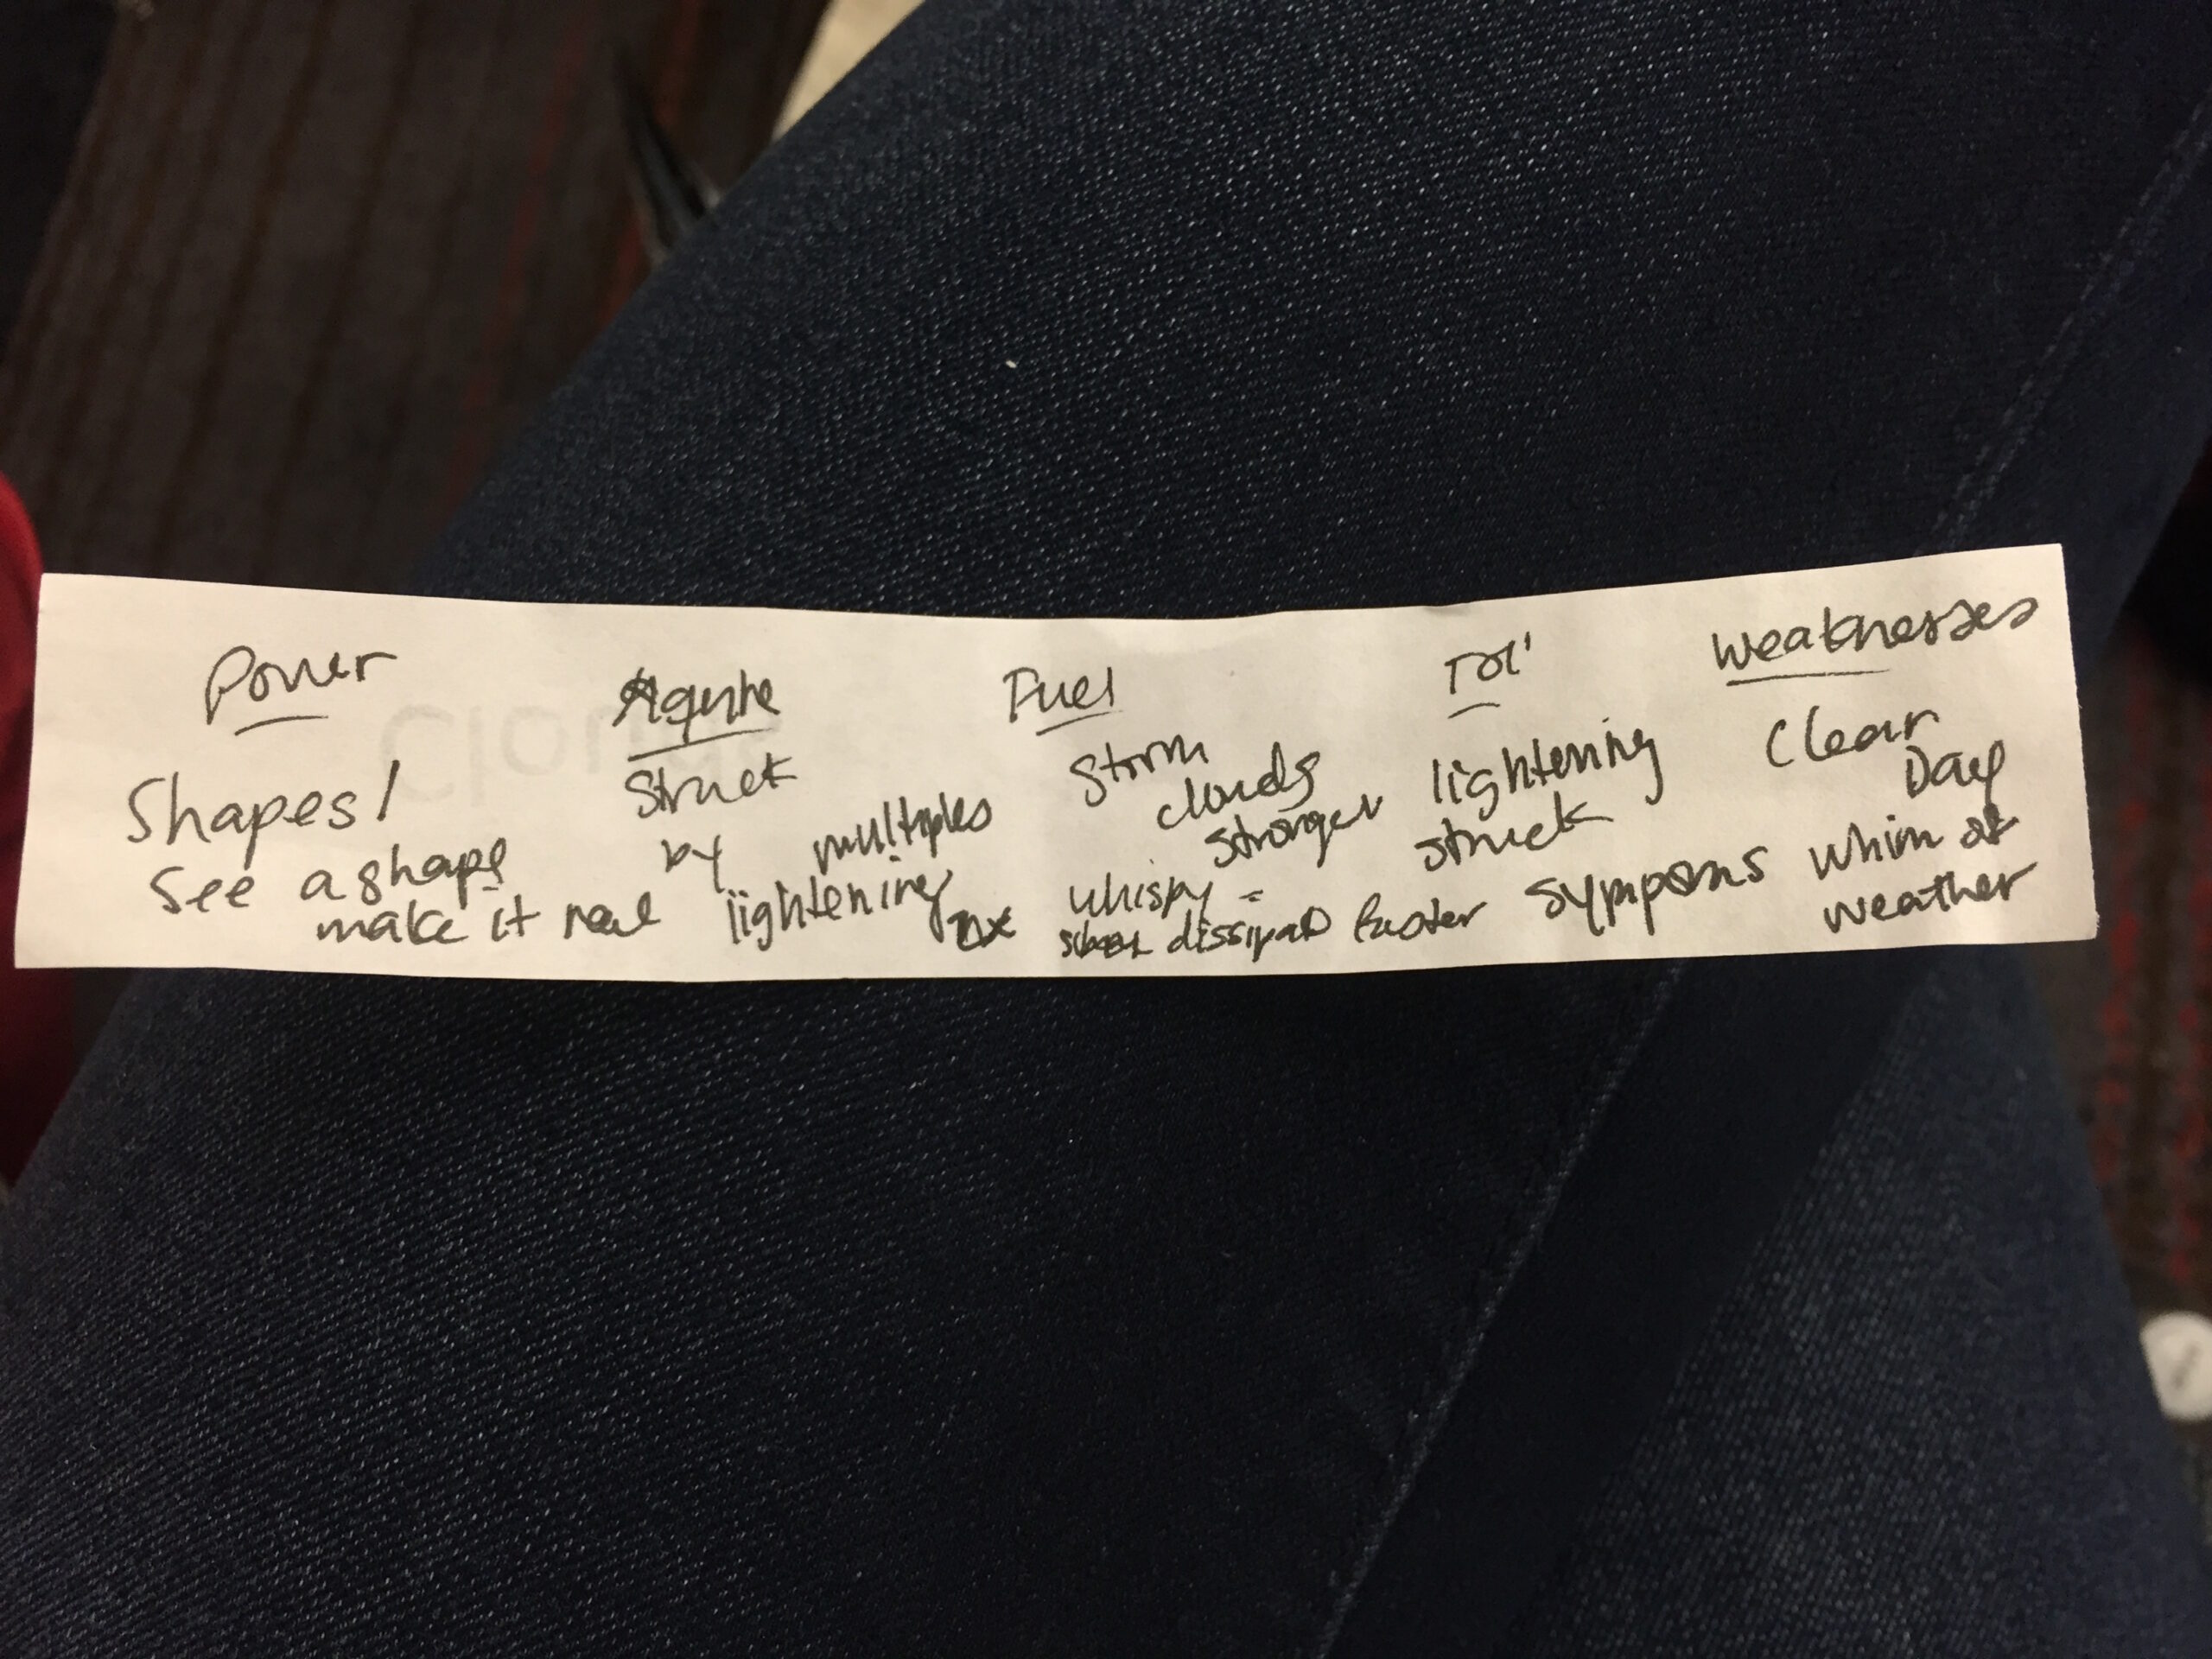 Power
Shapes!
See a shape
make it real
Struck
by multiples
lightening
Fuel
Storm
clouds
stronger
whispy =
dissipate faster
lightening
struck
Weaknesses
Clear
Day
whim of
weather